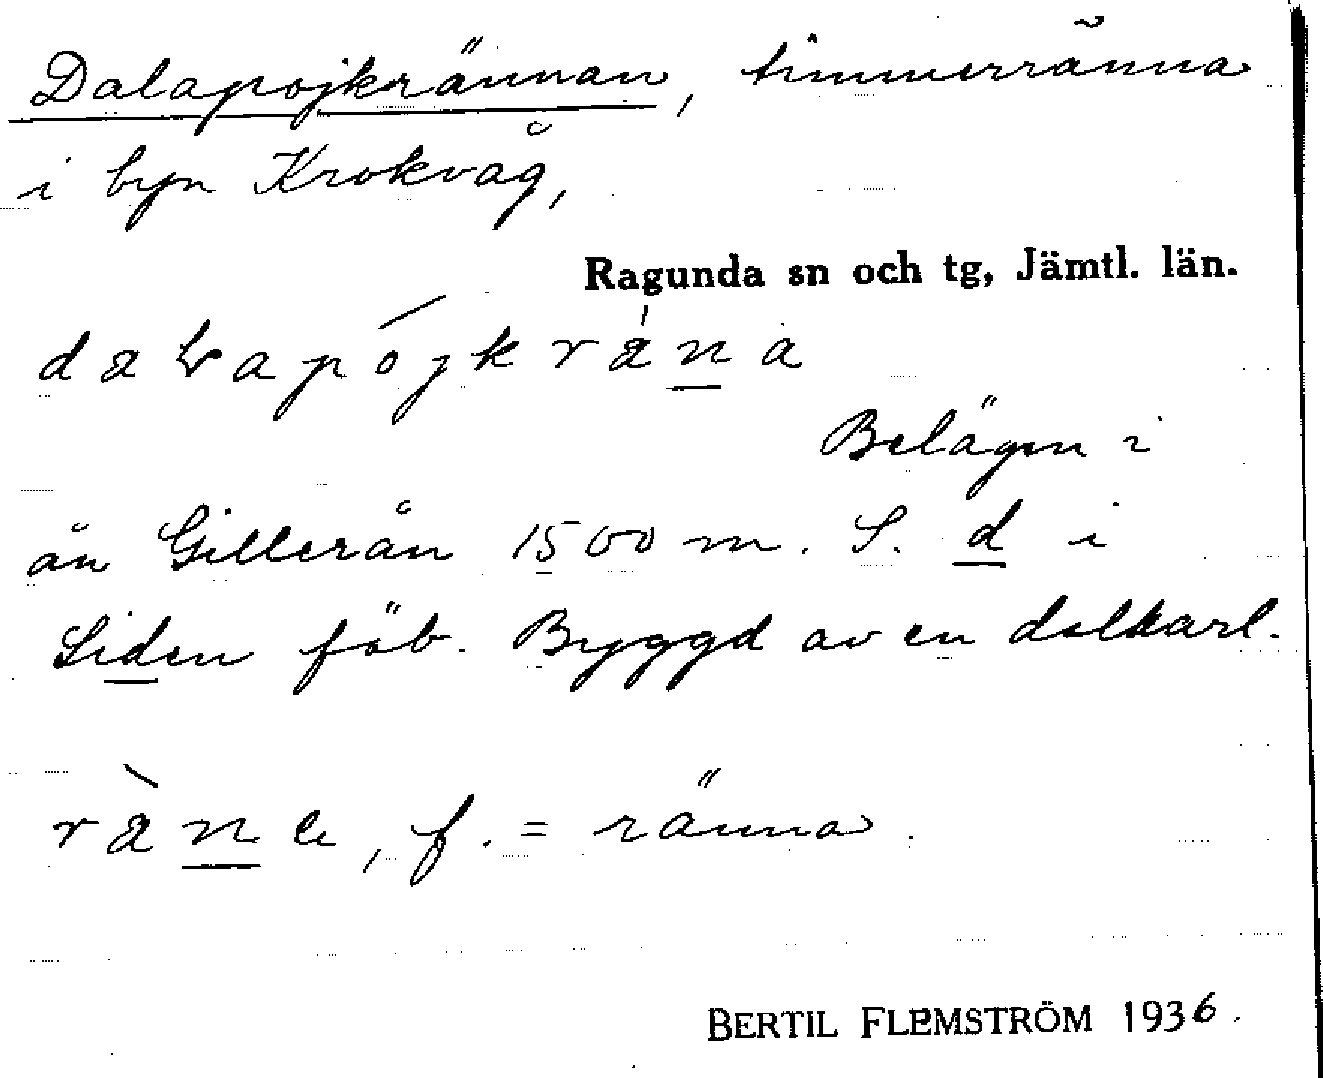 Dalapojkrännan, timmerränna
i byn Krokvåg,
Ragunda sn och tg, Jämtl. län.
Belägen i
ån Gillerån 1500 m. S. d i
Siden fäb. Byggd av en dalkarl.
f. = ränna.
BERTIL FLEMSTRÖM 1936.